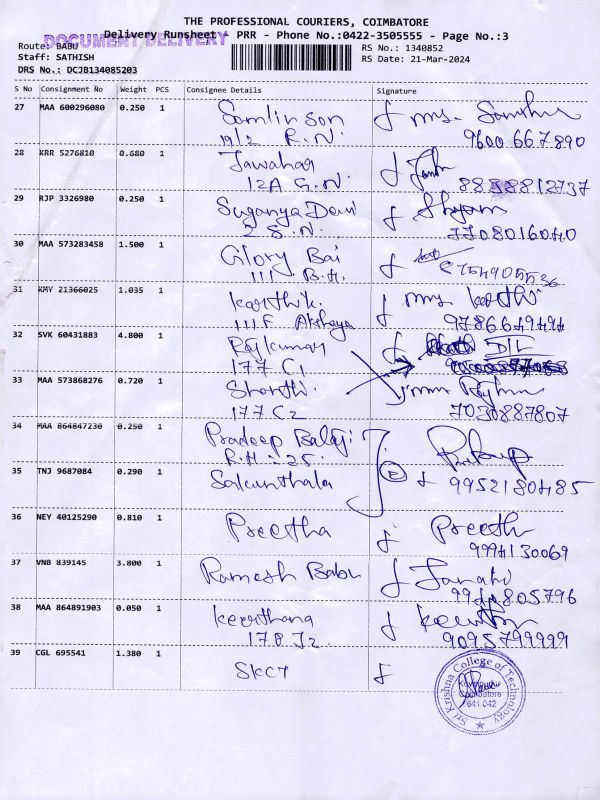 THE PROFESSIONAL COURIERS, COIMBATORE
Delivery Runsheet - PRR - Phone No.:0422-3505555 - Page No.:3
DOCUMENT DELIVERY
Route: BABU
RS No.: 1340852
Staff: SATHISH
RS Date: 21-Mar-2024
DRS No.: DCJB134085203
S No Consignment No Weight PCS Consignee Details Signature
27 MAA 600296080 0.250 1 Somlinson
19/2 R.N. 9600667890
28 KRR 5276810 0.680 1 Jawahar
12A G.N. 8888812737
29 RJP 3326980 0.250 1 Suganya Devi Shyam
2 S.N. 7708016040
30 MAA 573283458 1.500 1 Glory Bai
111 B.H.
31 KMY 21366025 1.035 1 Karthik. mrs. Karthi
111 F Akshaya 9786649494
32 SVK 60431883 4.800 1 Rajkumar DIL
177 C1
33 MAA 573868276 0.720 1 Shanthi.
177 C2 7030887807
34 MAA 864847230 0.250 1 Pradeep Balaji
R.H - 25.
35 TNJ 9687084 0.290 1 Sakunthala 9952180485
36 NEY 40125290 0.810 1 Preetha Preethi
9994130069
37 VNB 839145 3.800 1 Ramesh Babu Janaki
9944805796
38 MAA 864891903 0.050 1 Keerthana
178 J2 9095799999
39 CGL 695541 1.380 1 SKCT
Sri Krishna College of Technology
Kovaipudur
Coimbatore
641 042